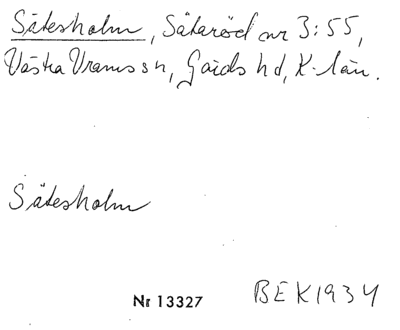 Sätesholm, Sätaröd nr 3:55,
Västra Vrams sn, Gärds hd, K-län.
Sätesholm
Nr 13327
BEK1934